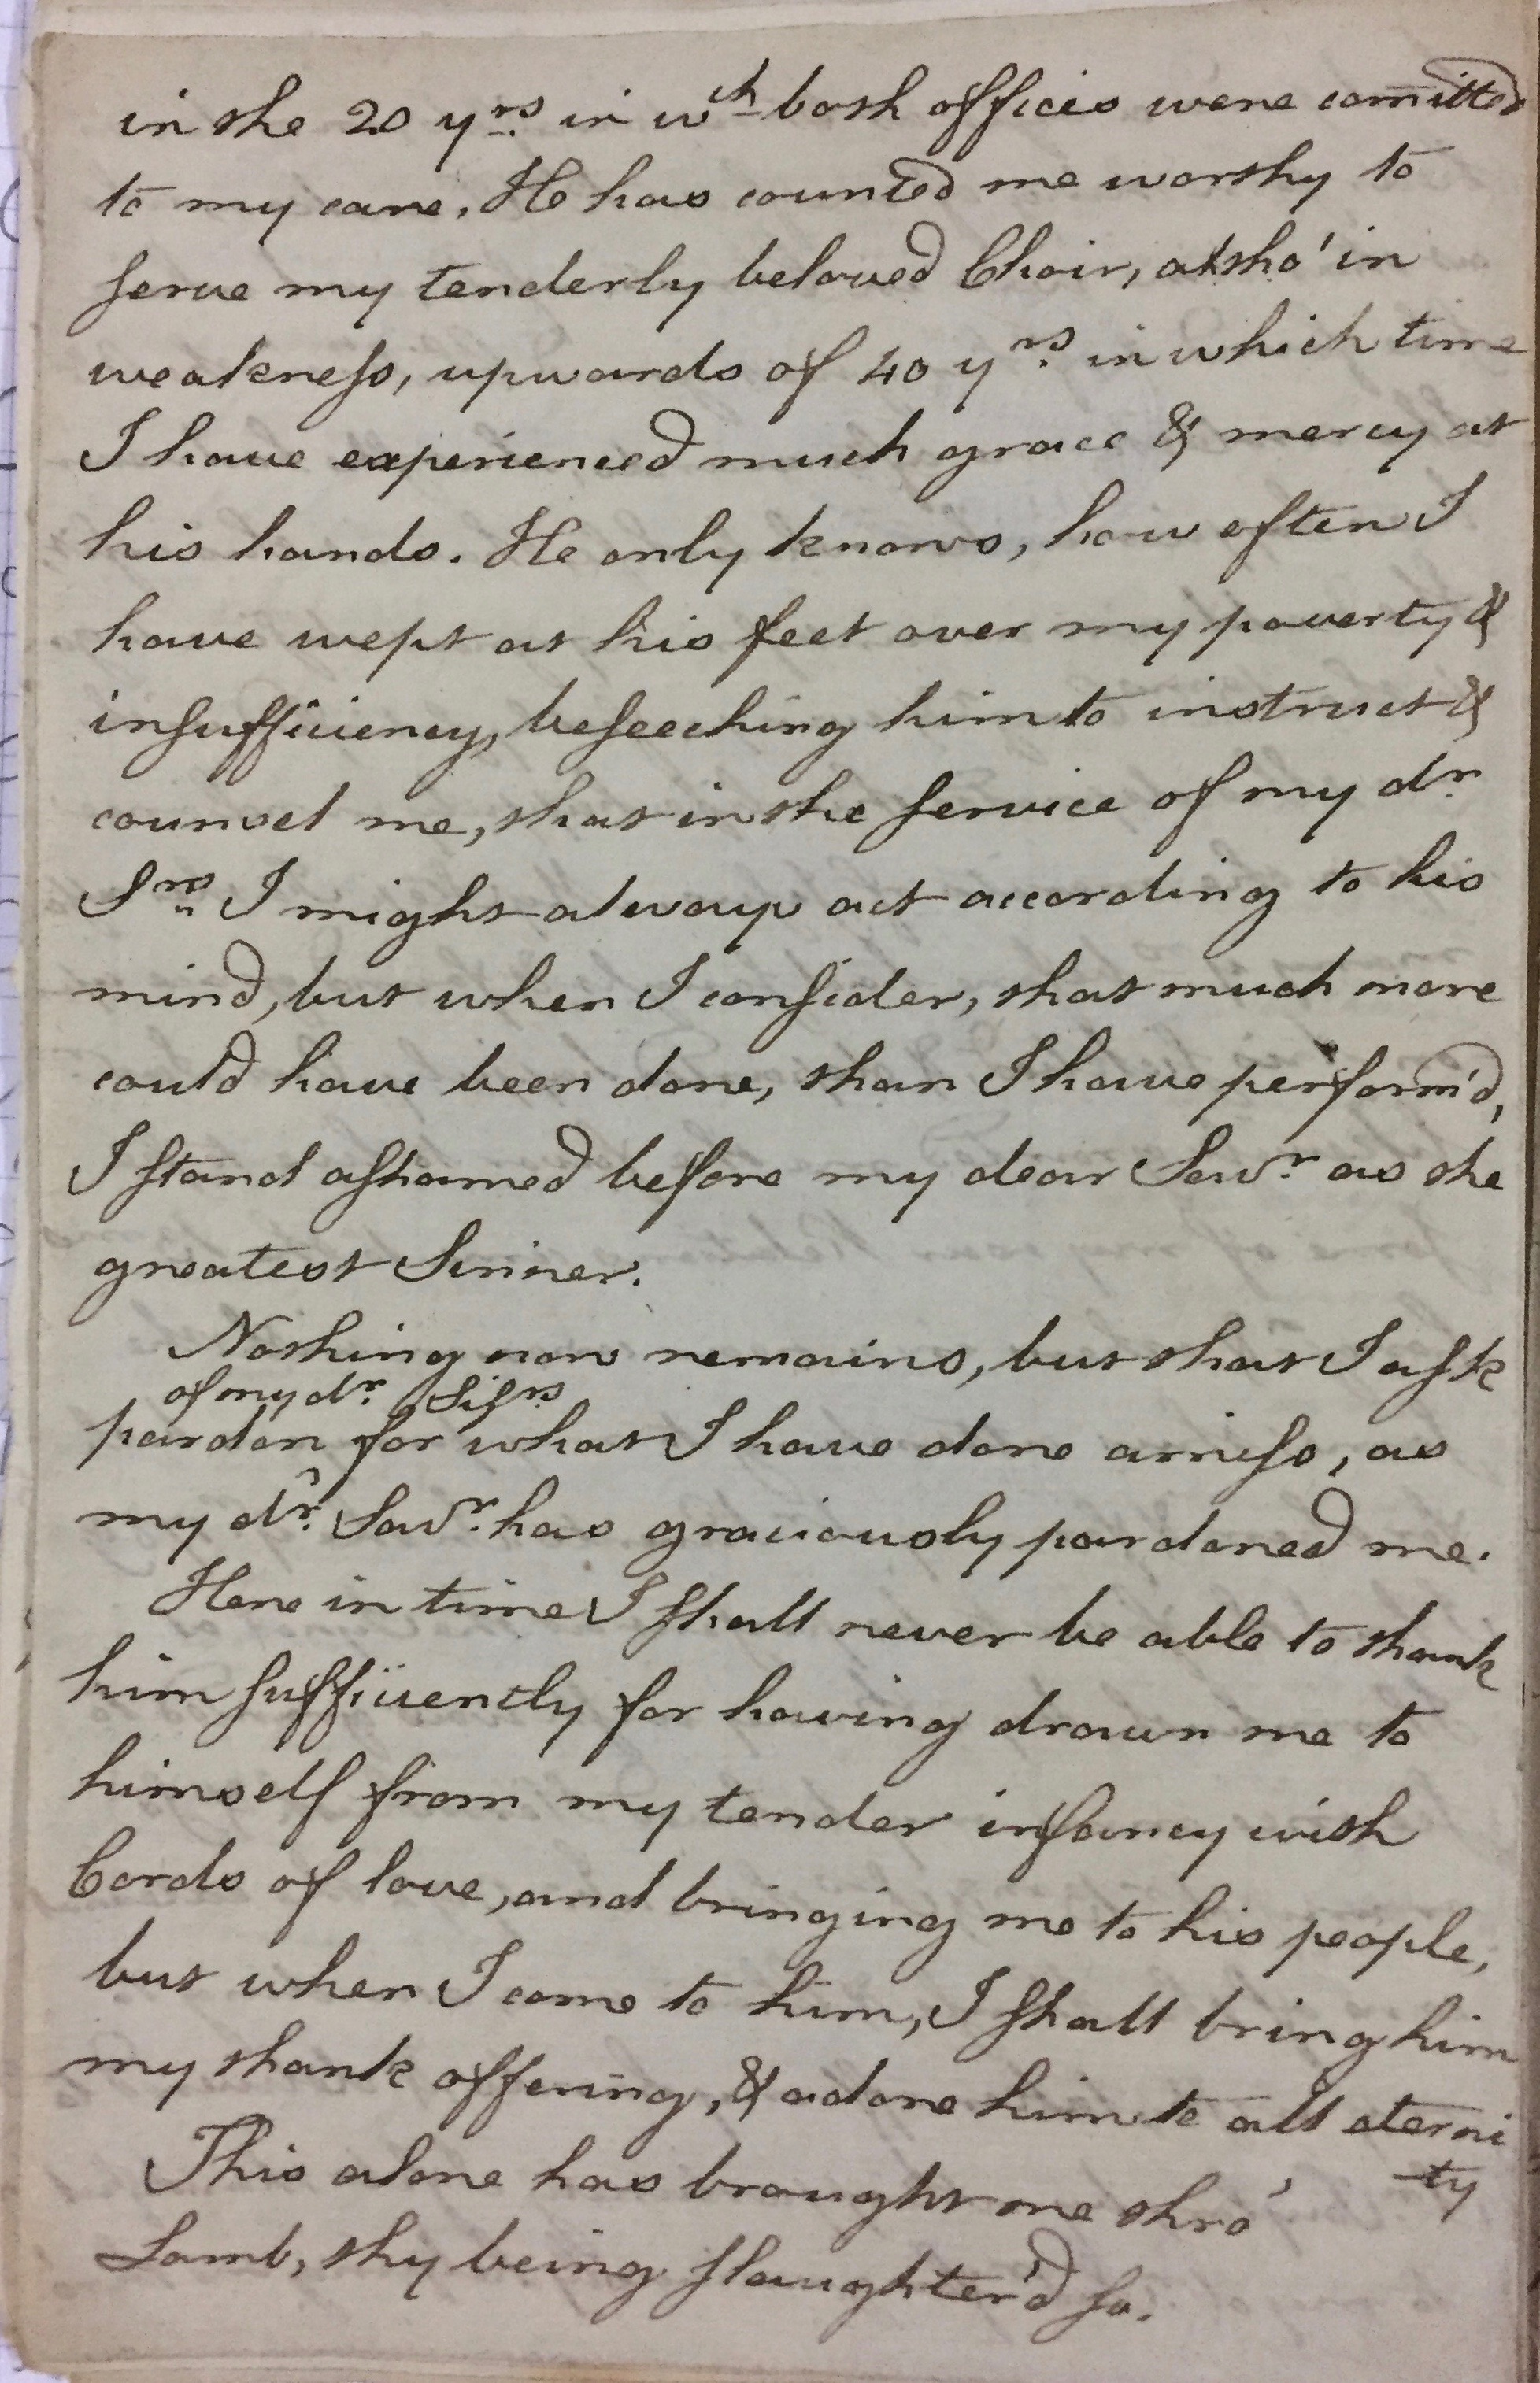 in the 20 yrs. in wch both offices were com̄itted
to my care. He has counted me worthy to
serve my tenderly beloved Choir, altho' in
weakness, upwards of 40 yrs. in which time
I have experienced much grace & mercy at
his hands. He only knows, how often I
have wept at his feet over my poverty &
insufficiency, beseeching him to instruct &
counsel me, that in the service of my dr.
Srs. I might always act according to his
mind, but when I consider, that much more
could have been done, than I have perform'd,
I stand ashamed before my dear Savr. as the
greatest Sinner.
Nothing now remains, but that I ask
of my dr. Sisrs.
pardon for what I have done amiss, as
my dr. Savr. has graciously pardoned me.
Here in time I shall never be able to thank
him sufficiently for having drawn me to
himself from my tender infancy with
Cords of love, and bringing me to his people,
but when I come to him, I shall bring him
my thank offering, & adore him to all eterni
ty
This alone has brought me thro'
Lamb, thy being slaughter'd so.